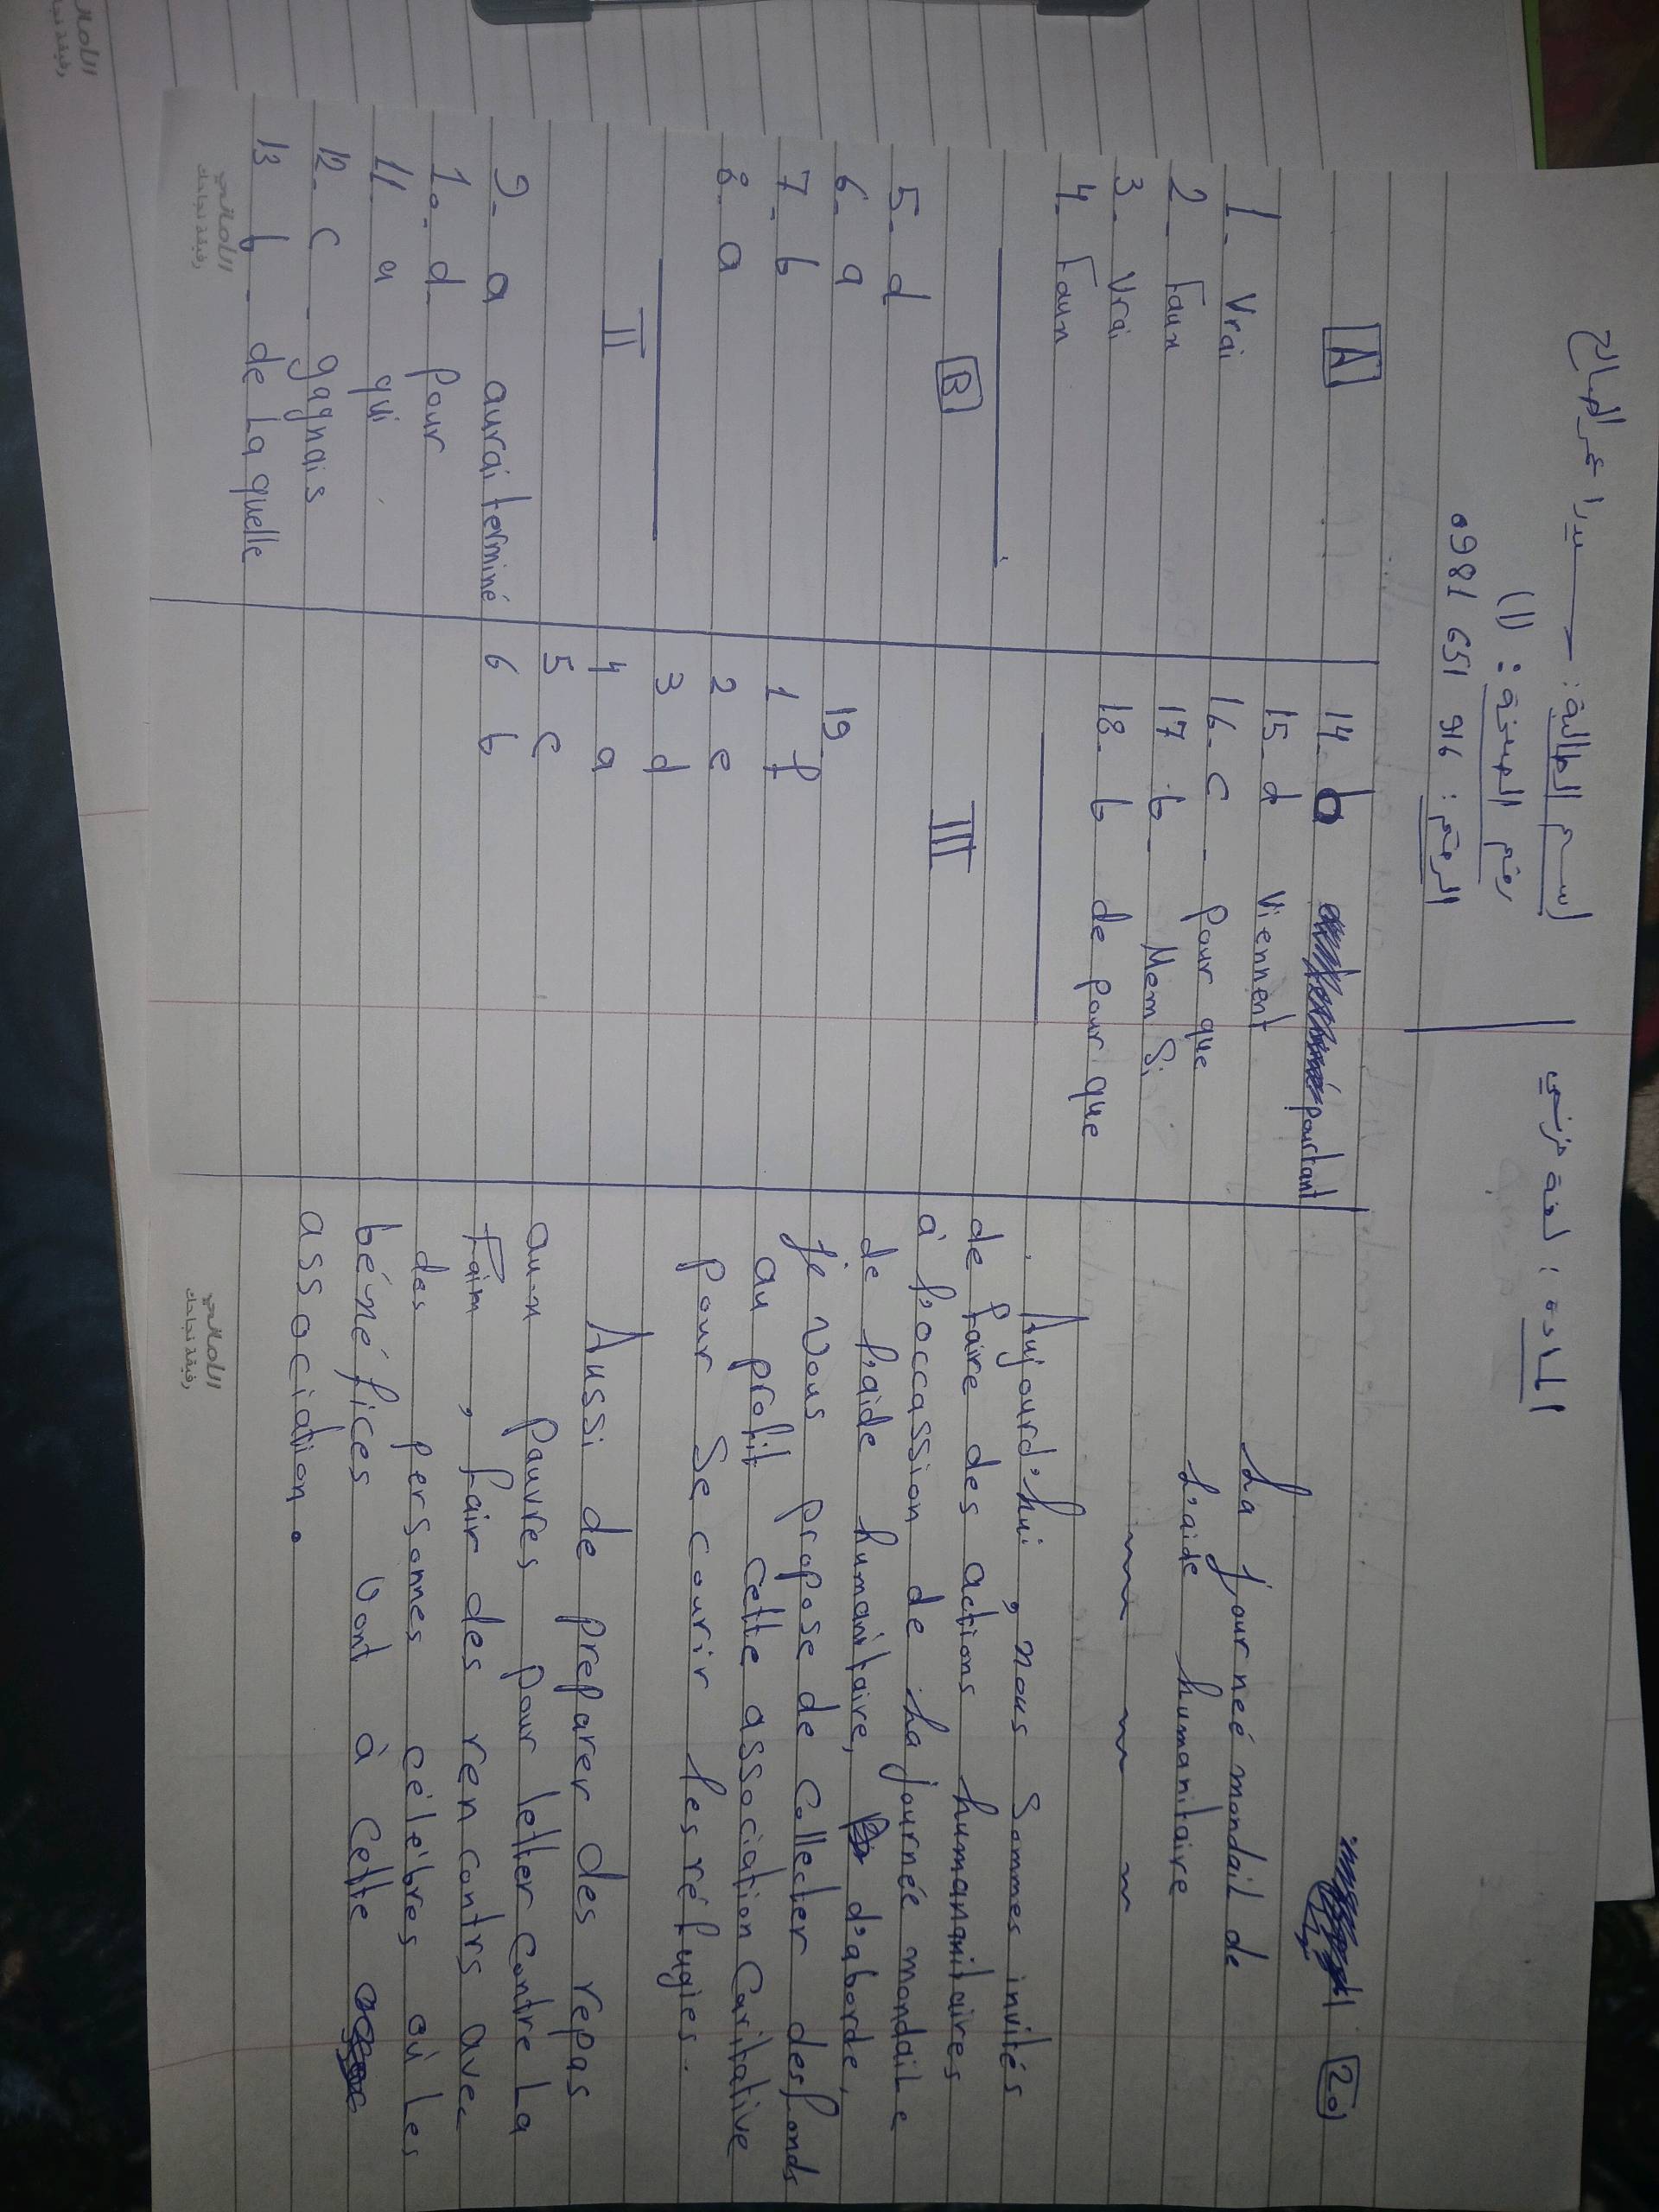 اسم الطالبة: سيدرا عمر الصباح
رقم الصفحة : (1)
الرقم : 0981 651 916
المادة : لغة فرنسي
A
1- Vrai
2- Faux
3- Vrai
4- Faux
B
5- d
6- a
7- b
8- a
II
9- a aurai terminé
10- d- pour
11- a qui
12- c - gagnais
13 b - de La quelle
14- b pourtant
15- d Viennent
16- c - pour que
17 b- Mem Si
18- b de pour que
III
19
1 f
2 e
3 d
4 a
5 c
6 b
20
La journeé mondail de
L'aide humanitaire
Aujourd'hui, nous Sommes invités
de faire des actions humananitaires
à l'occassion de La journée mondaile
de l'aide humanitaire, d'aborde,
je Vous propose de Collecter des fonds
au profit cette association Caritative
pour Se courir les réfugies.
Aussi de preparer des repas
au-n pauvres pour letter contre La
Faim, fair des ren contrs avec
des personnes célèbres où Les
bénéfices Vont à Cette
association.
اللامالحي
رفيقة نجاحك
اللامالحي
رفيقة نجاحك